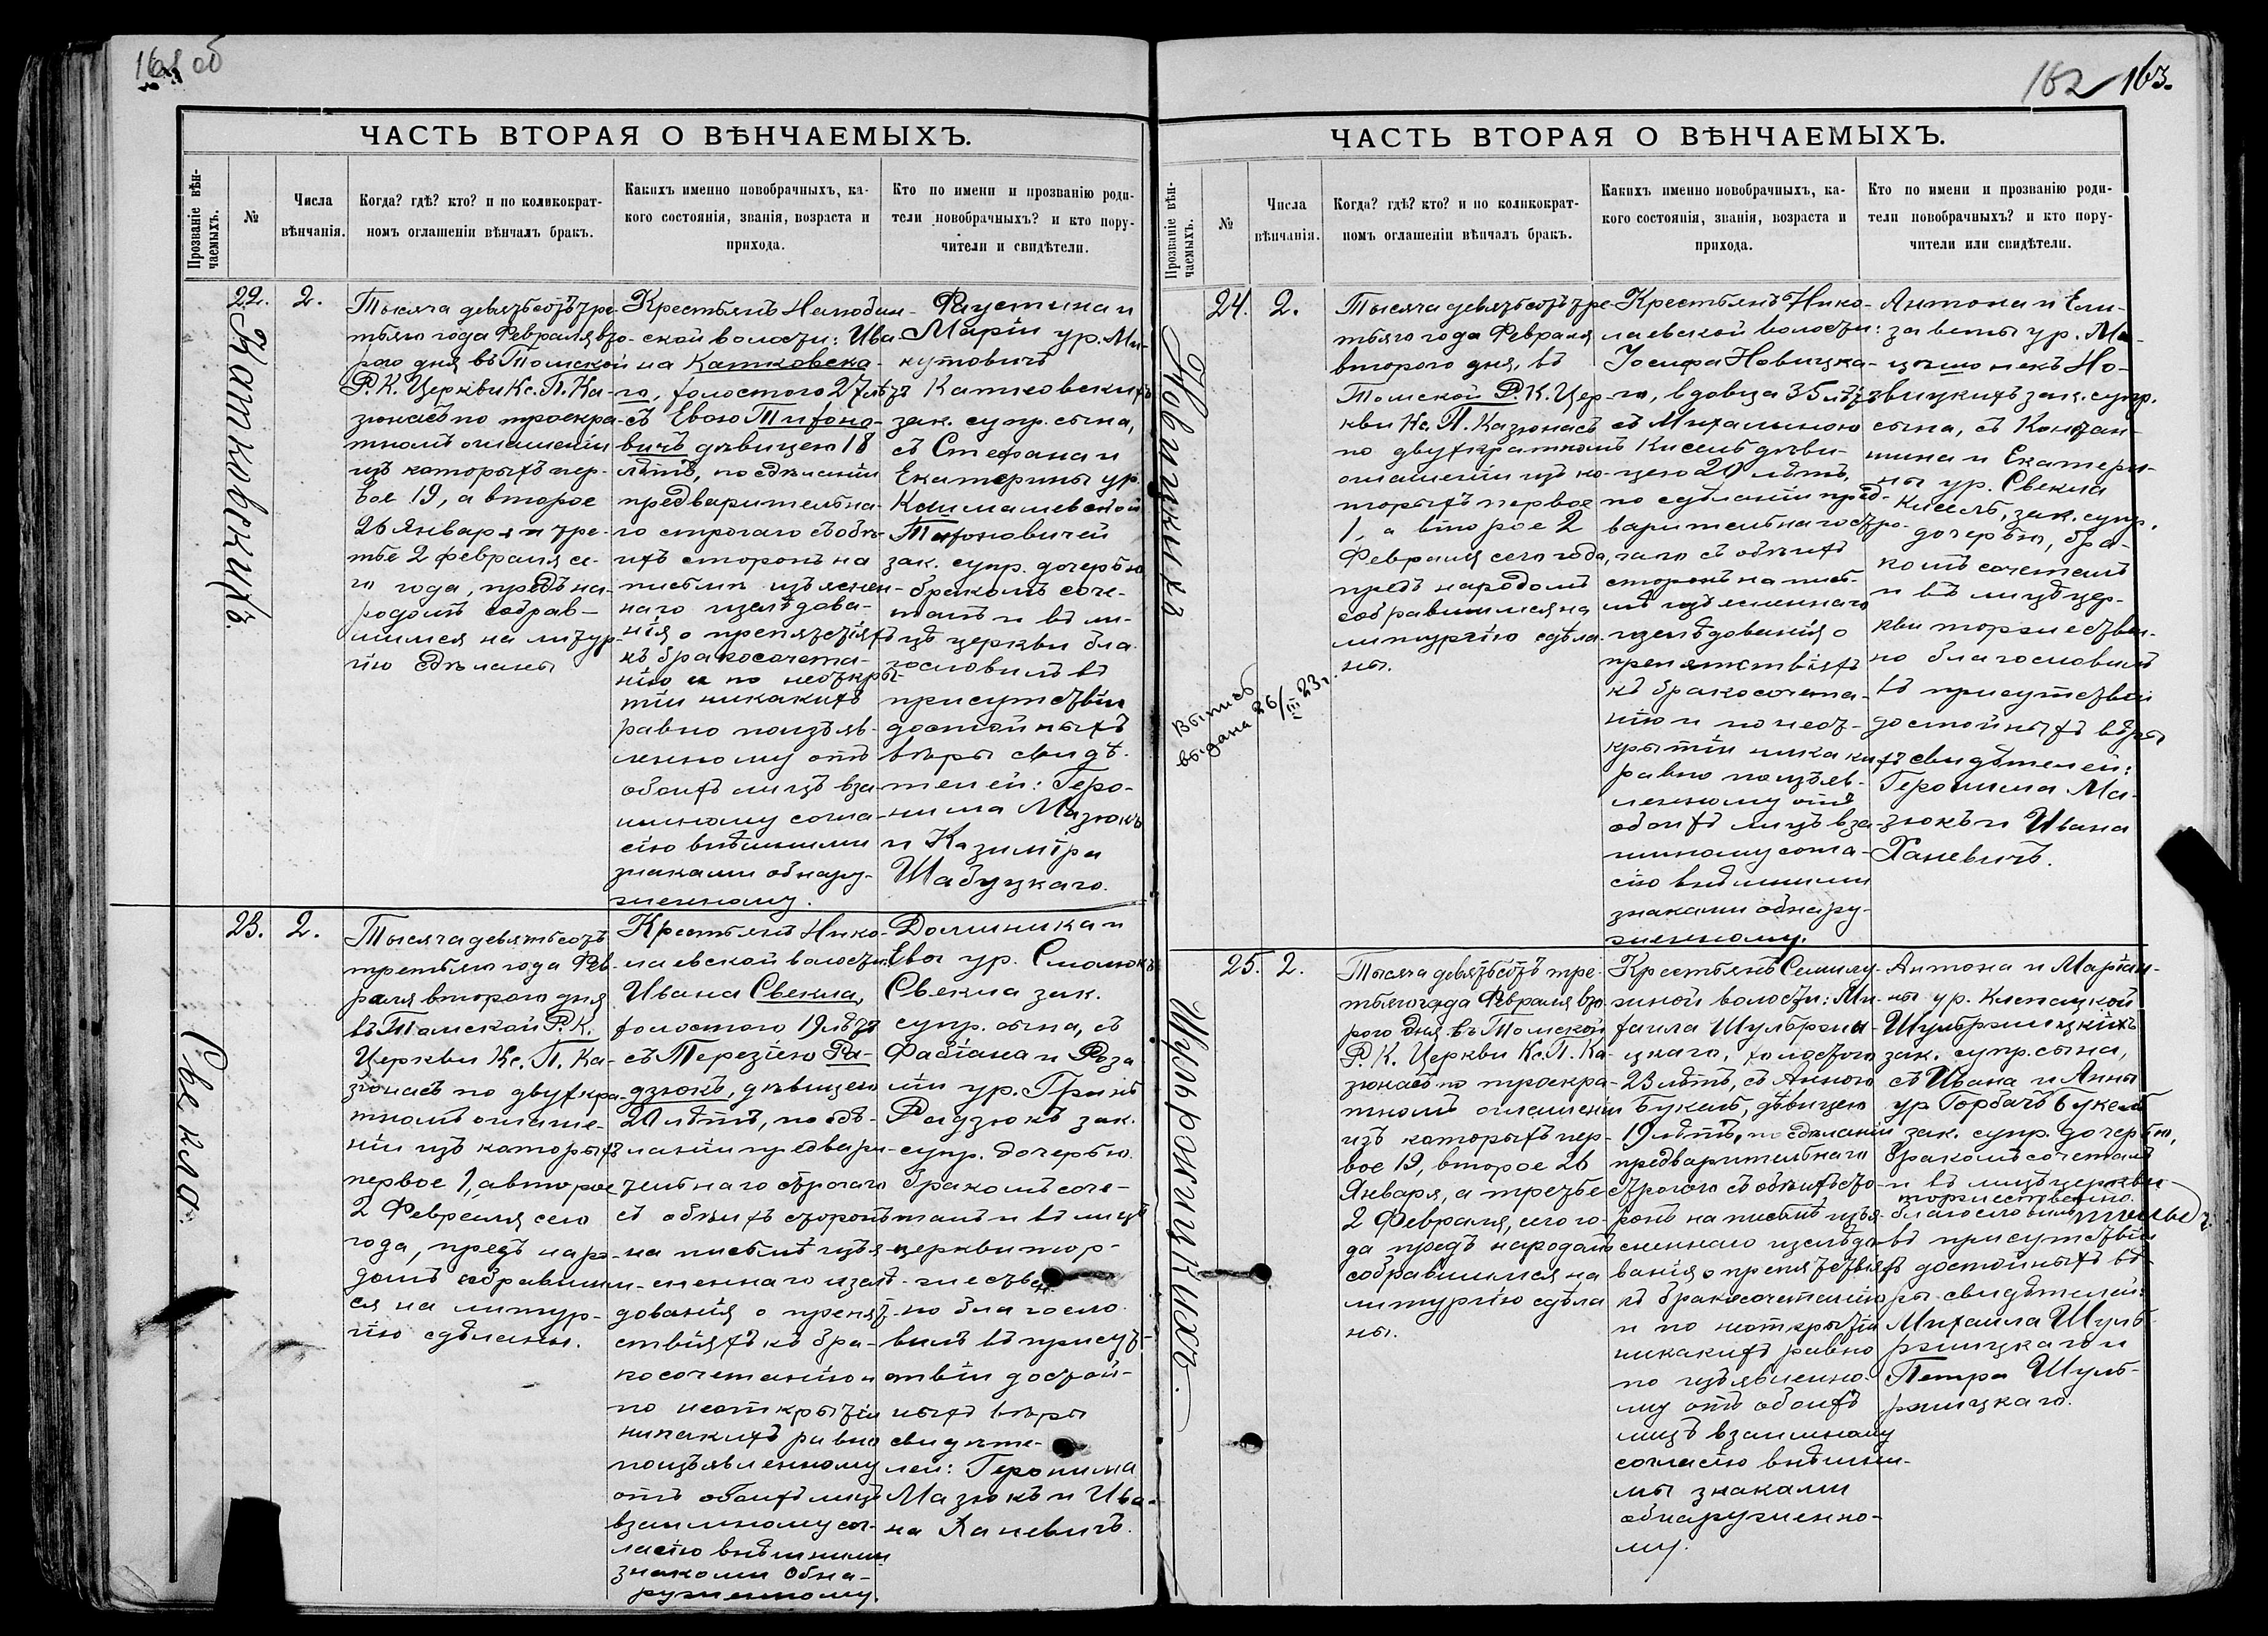 ЧАСТЬ ВТОРАЯ О ВѢНЧАЕМЫХЪ.
Прозваніе вѣн-
чаемыхъ.
№
Числа
вѣнчанія.
Когда? гдѣ? кто? и по коликократ-
номъ оглашеніи вѣнчалъ бракъ.
Какихъ именно новобрачныхъ, ка-
кого состоянія, званія, возраста и
прихода.
Кто по имени и прозванію роди-
тели новобрачныхъ? и кто пору-
чители и свидѣтели.
Катковскихъ.
22.
2.
Тысяча девятьсотъ тре-
тьяго года Февраля вто-
рого дня въ Томской
Р.К. Церкви Кс. П. Ка-
зюнасъ по троекра-
тномъ оглашеніи
изъ которыхъ пер-
вое 19, а второе
26 Января и тре-
тье 2 февраля се-
го года, предъ на-
родомъ собрав-
шимся на литур-
гію сдѣланы
Крестьянъ
ской волости: Ива-
на Катковска-
го, холостого 27 лѣтъ
съ Евою Тифоно-
вичъ дѣвицею 18
лѣтъ, по сдѣланіи
предварительна-
го строгаго съ обѣ-
ихъ сторонъ на
письмѣ изъяснен-
наго изслѣдова-
нія о препятствіяхъ
къ бракосочета-
нію и по неоткры-
тіи никакихъ
равно по изъяв-
ленному отъ
обоихъ лицъ вза-
имному согла-
сію внѣшними
знаками обнару-
женному.
Фаустина и
Маріи ур. Ми-
кутовичъ
Катковскихъ
зак. супр. сына,
съ Стефана и
Екатерины ур.
Климашевской
Тифоновичей
зак. супр. дочерью
бракомъ соче-
талъ и въ ли-
цѣ церкви бла-
гословилъ въ
присутствіи
достойныхъ
вѣры свидѣ-
телей: Геро-
нима Мазюкъ
и Казиміра
Шабуцкаго.
Свекла.
23.
2.
Тысяча девятьсотъ
третьяго года Фев-
раля второго дня
въ Томской Р.К.
Церкви Кс. П. Ка-
зюнасъ по двухкра-
тномъ оглаше-
ніи изъ которыхъ
первое 1, а второе
2 Февраля сего
года, предъ наро-
домъ собравшим-
ся на литур-
гію сдѣланы.
Крестьянъ Нико-
лаевской волости:
Ивана Свекла,
холостого 19 лѣтъ
съ Терезіею Ра-
дзюкъ, дѣвицею
20 лѣтъ, по сдѣ-
ланіи предвари-
тельнаго строгаго
съ обѣихъ сторонъ
на письмѣ изъя-
сненнаго изслѣ-
дованія о препят-
ствіяхъ къ бра-
косочетанію и
по неоткрытіи
никакихъ равно
по изъявленному
отъ обоихъ лицъ
взаимному сог-
ласію внѣшними
знаками обна-
руженному.
Доминика и
Евы ур. Смолюкъ
Свекла зак.
супр. сына, съ
Фабіана и Роза-
ліи ур. Гринъ
Радзюкъ зак.
супр. дочерью.
бракомъ соче-
талъ и въ лицѣ
церкви тор-
жествен-
но благосло-
вилъ въ присут-
ствіи достой-
ныхъ вѣры
свидѣте-
лей: Геронима
Мазюкъ и Ива-
на Ханевичъ.
162 163.
ЧАСТЬ ВТОРАЯ О ВѢНЧАЕМЫХЪ.
Прозваніе вѣн-
чаемыхъ.
№
Числа
вѣнчанія.
Когда? гдѣ? кто? и по коликократ-
номъ оглашеніи вѣнчалъ бракъ.
Какихъ именно новобрачныхъ, ка-
кого состоянія, званія, возраста и
прихода.
Кто по имени и прозванію роди-
тели новобрачныхъ? и кто пору-
чители или свидѣтели.
Новицкихъ
Выпись
выдана 26/III 23 г.
24.
2.
Тысяча девятьсотъ тре-
тьяго года Февраля
второго дня, въ
Томской Р.К. Цер-
кви Кс. П. Казюнасъ
по двухкратномъ
оглашеніи изъ ко-
торыхъ первое
1, а второе 2
Февраля сего года,
предъ народомъ
собравшимся на
литургію сдѣла-
ны.
Крестьянъ Нико-
лаевской волости:
Іосифа Новицка-
го, вдовца 35 лѣтъ
съ Михалиною
Кисель дѣви-
цею 20 лѣтъ,
по сдѣланіи пред-
варительнаго стро-
гаго съ обѣихъ
сторонъ на пись-
мѣ изъясненнаго
изслѣдованія о
препятствіяхъ
къ бракосочета-
нію и по неот-
крытіи никаки-
равно по изъяв-
ленному отъ
обоихъ лицъ вза-
имному согла-
сію внѣшними
знаками обнару-
женному.
Антона и Ели-
заветы ур. Ма-
цюшонекъ Но-
вицкихъ зак. супр.
сына, съ Констан-
тина и Екатери-
ны ур. Свекла
Кисель, зак. супр.
дочерью, бра-
комъ сочеталъ
и въ лицѣ цер-
кви торжествен-
но благословилъ
въ присутствіи
достойныхъ вѣры
хъ свидѣтелей:
Геронима Ма-
зюкъ и Ивана
Ханевичъ.
Шульржицкихъ.
25.
2.
Тысяча девятьсотъ тре-
тьяго года Февраля вто-
рого дня въ Томской
Р.К. Церкви Кс. П. Ка-
зюнасъ по троекра-
тномъ оглашеніи
изъ которыхъ пер-
вое 19, второе 26
Января, а третье
2 Февраля, сего го-
да предъ народомъ
собравшимся на
литургію сдѣла-
ны.
Крестьянъ Семилу-
жной волости: Ми-
хаила Шульржи-
цкаго, холостого
23 лѣтъ, съ Анною
Букель, дѣвицею
19 лѣтъ, по сдѣланіи
предварительнаго
строгаго съ обѣихъ сто-
ронъ на письмѣ изъя-
сненнаго изслѣдо-
ванія о препятствіяхъ
къ бракосочетанію
и по неоткрытіи
никакихъ равно
по изъявленно-
му отъ обоихъ
лицъ взаимному
согласію внѣшни-
мы знаками
обнаруженно-
му.
Антона и Маріан-
ны ур. Клепацкой
Шульржицкихъ
зак. супр. сына,
съ Ивана и Анны
ур Горбачъ Букель
зак. супр. дочерью,
бракомъ сочеталъ
и въ лицѣ церкви
торжественно
благословилъ
въ присутствіи
достойныхъ вѣ-
ры свидѣтелей:
Михаила Шуль-
ржицкаго и
Петра Шуль-
ржицкаго.